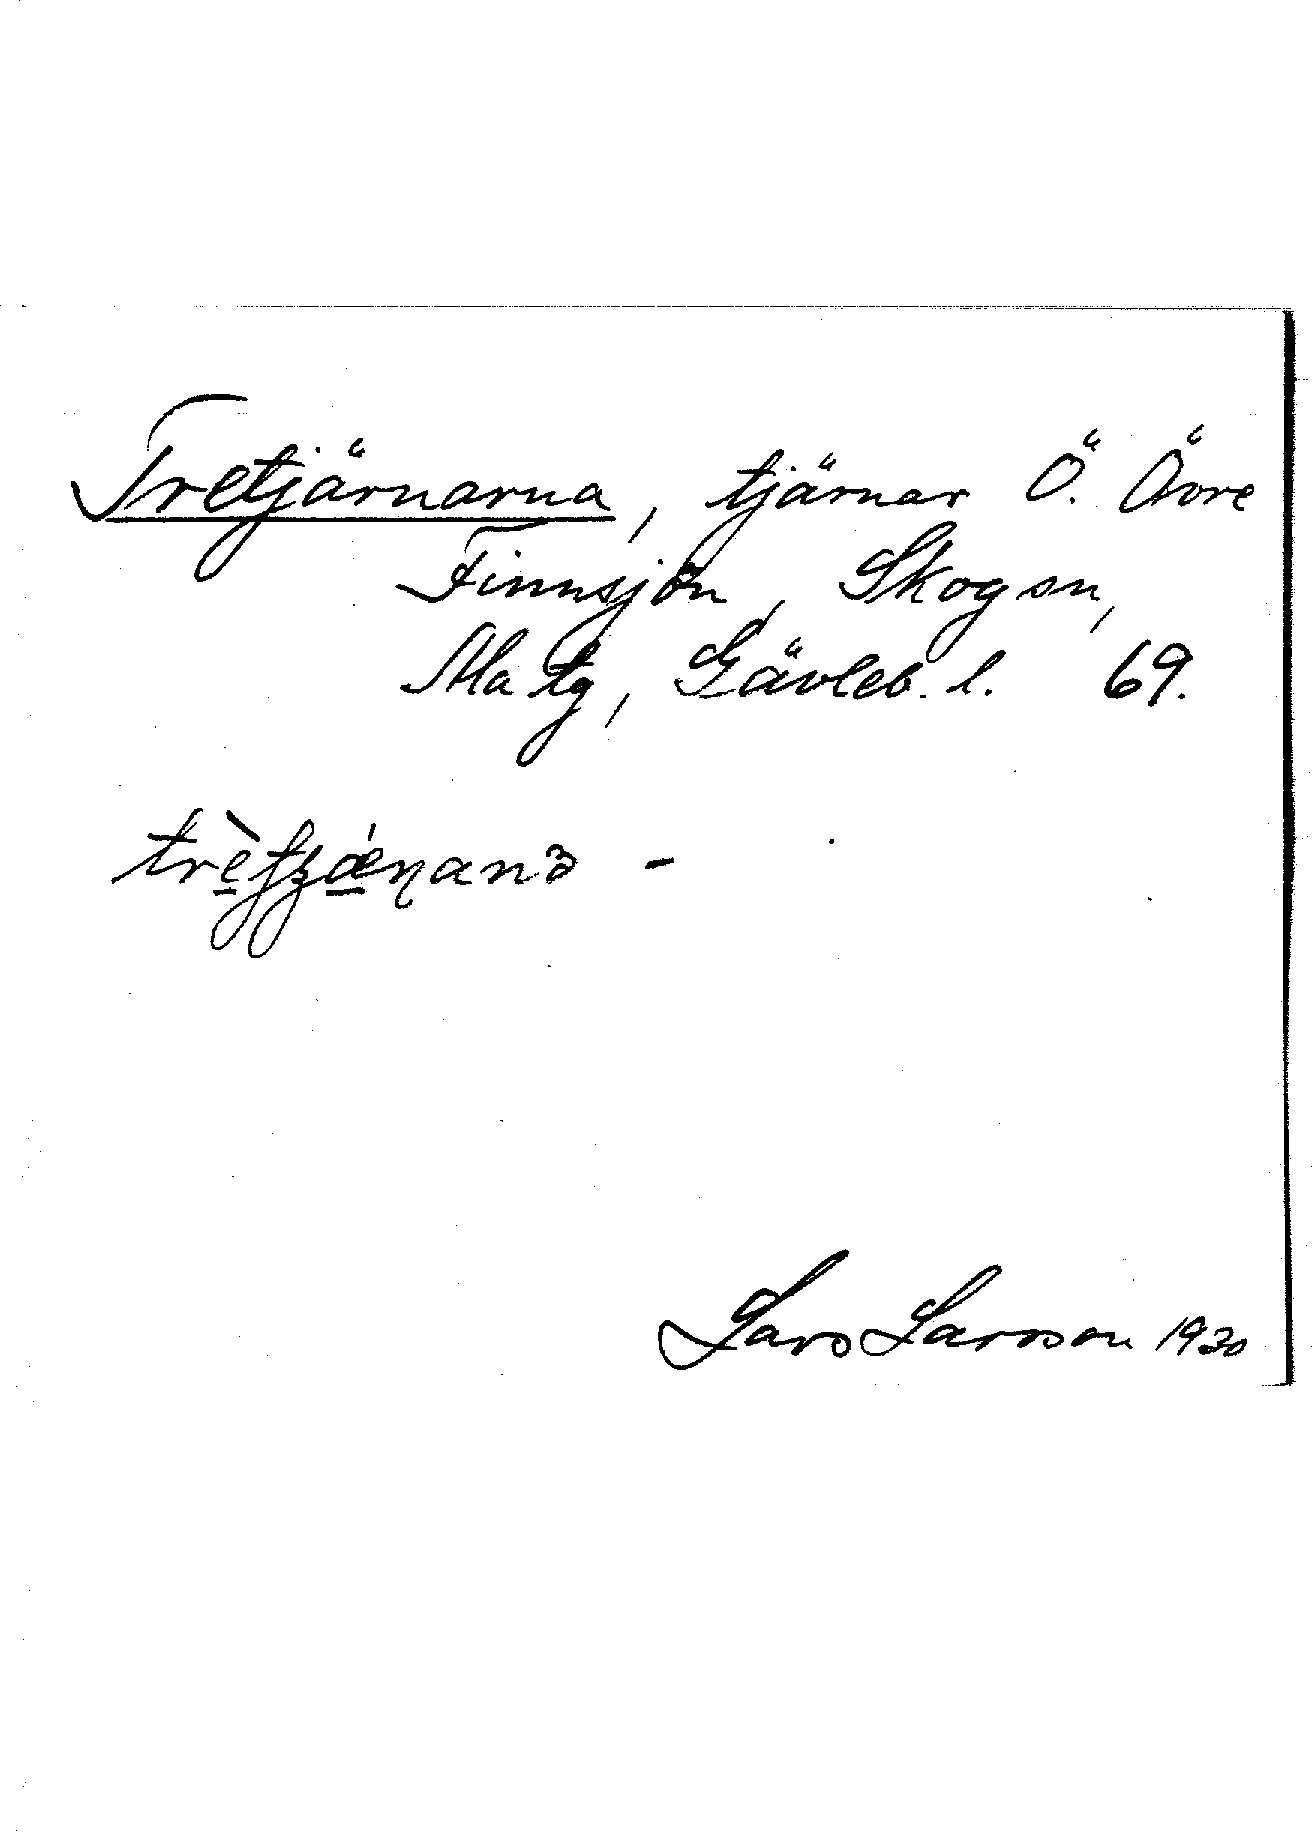 Tretjärnarna, tjärnar Ö. Övre
Finnsjön, Skogsn,
Ma tg, Gävleb. l. 69.
Lars Larsson 1930